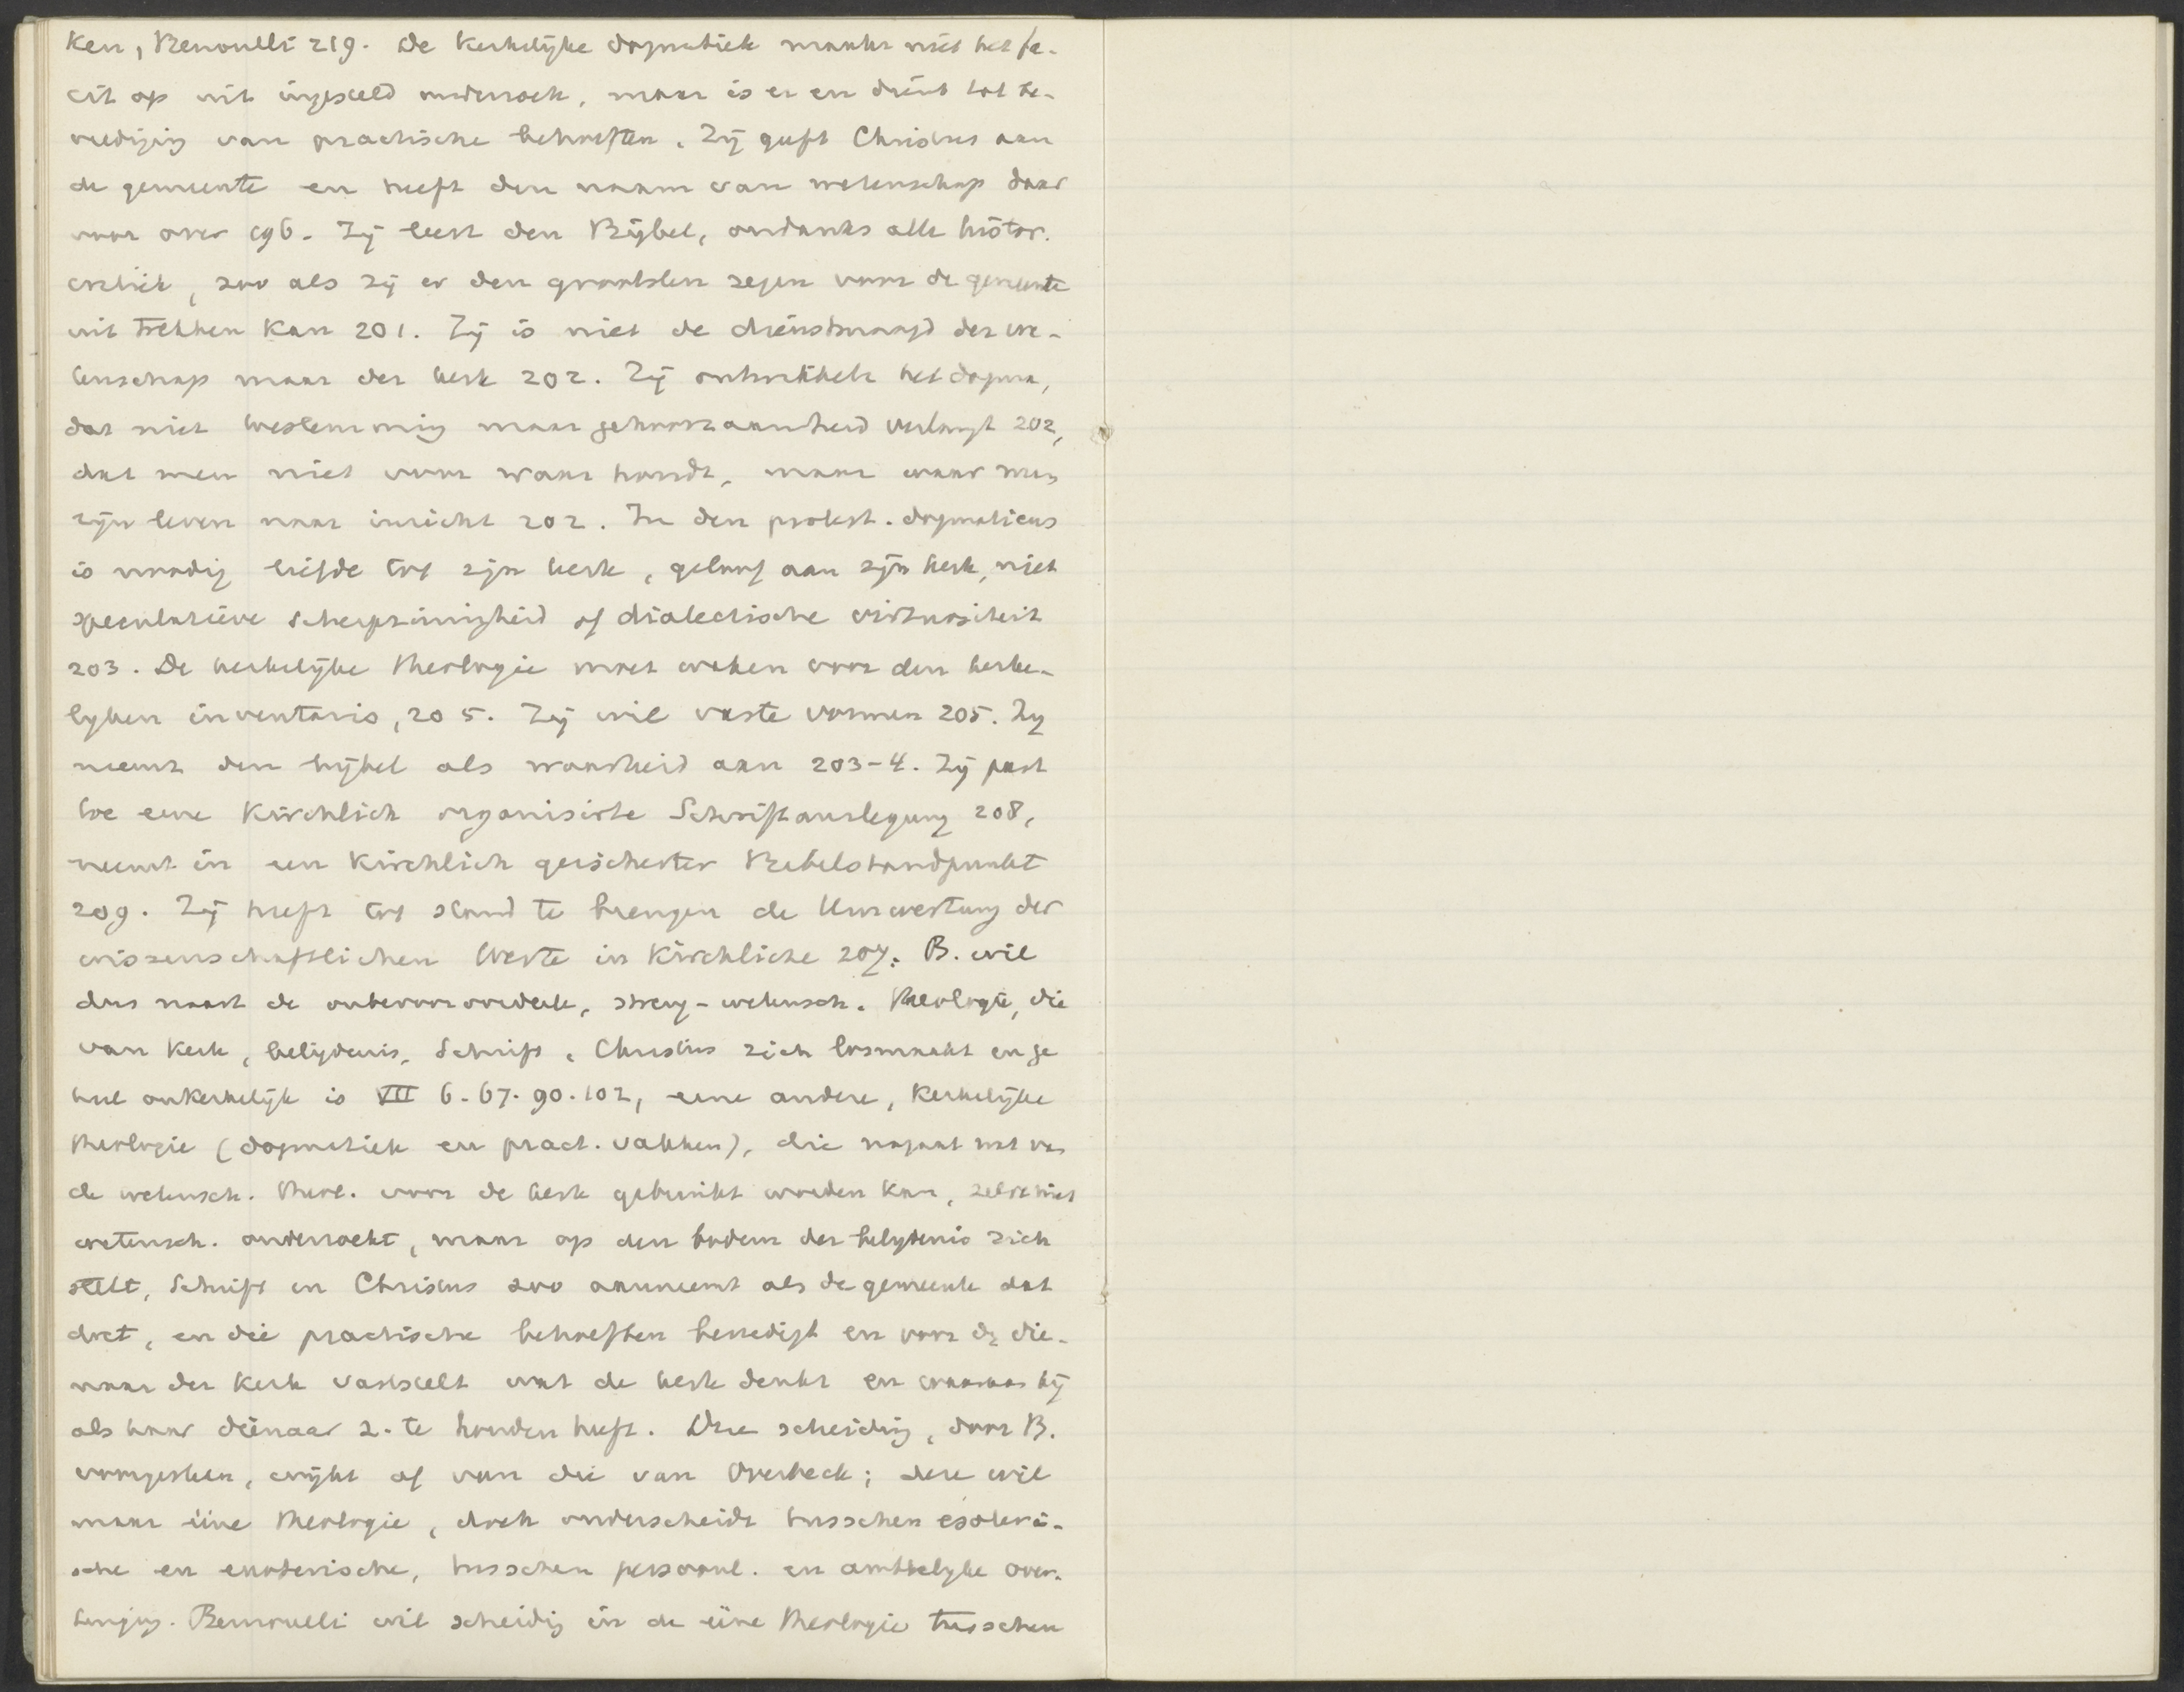 ken, Bernoulli 219. De kerkelijke dogmatiek maakt niet het fa-
cit op uit ingesteld onderzoek, maar is er en dient tot be-
vrediging van practische behoeften. Zij geeft Christus aan
de gemeente en heeft den naam van wetenschap daar
voor over 196. Zij leest den Bijbel, ondanks alle histor.
critiek, zoo als zij er den grootsten zegen voor de gemeente
uit trekken kan 201. Zij is niet de dienstmaagd der we-
tenschap maar der kerk 202. Zij ontwikkelt het dogma,
dat niet toestemming maar gehoorzaamheid verlangt 202,
dat men niet voor waar houdt, maar waar men
zijn leven naar inricht 202. In den protest. dogmaticus
is noodig liefde tot zijn kerk, geloof aan zijn kerk, niet
speculatieve scherpzinnigheid of dialectische virtuositeit
203. De kerkelijke theologie moet waken voor den kerke-
lyken inventaris, 205. Zij wil vaste vormen 205. Zy
neemt den bijbel als waarheid aan 203-4. Zij past
toe eene kirchlich organisirte Schriftauslegung 208,
neemt in een kirchlich gesicherter Bibelstandpunkt
209. Zij heeft tot stand te brengen de Umwertung der
wissenschaftlichen Werte in kirchliche 207. B. wil
dus naast de onbevooroordeelde, streng-wetensch. theologie, die
van kerk, belijdenis, Schrift, Christus zich losmaakt en ge
heel onkerkelijk is VII 6. 67. 90. 102, eene andere, kerkelijke
theologie (dogmatiek en pract. vakken), die nagaat wat van
de wetensch. theol. voor de kerk gebruikt worden kan, zelve niet
wetensch. onderzoekt, maar op den bodem der belydenis zich
stelt, Schrift en Christus zoo aanneemt als de gemeente dat
doet, en die practische behoeften bevredigt en voor de die-
naar der kerk vaststelt wat de kerk denkt en waaraan hij
als haar dienaar z. te houden heeft. Deze scheiding, door B.
voorgesteld, wijkt af van die van Overbeck; deze wil
maar ééne theologie, doch onderscheidt tusschen esoteri-
sche en exoterische, tusschen persoonl. en ambtelyke over-
tuiging. Bernoulli wil scheiding in de ééne theologie tusschen